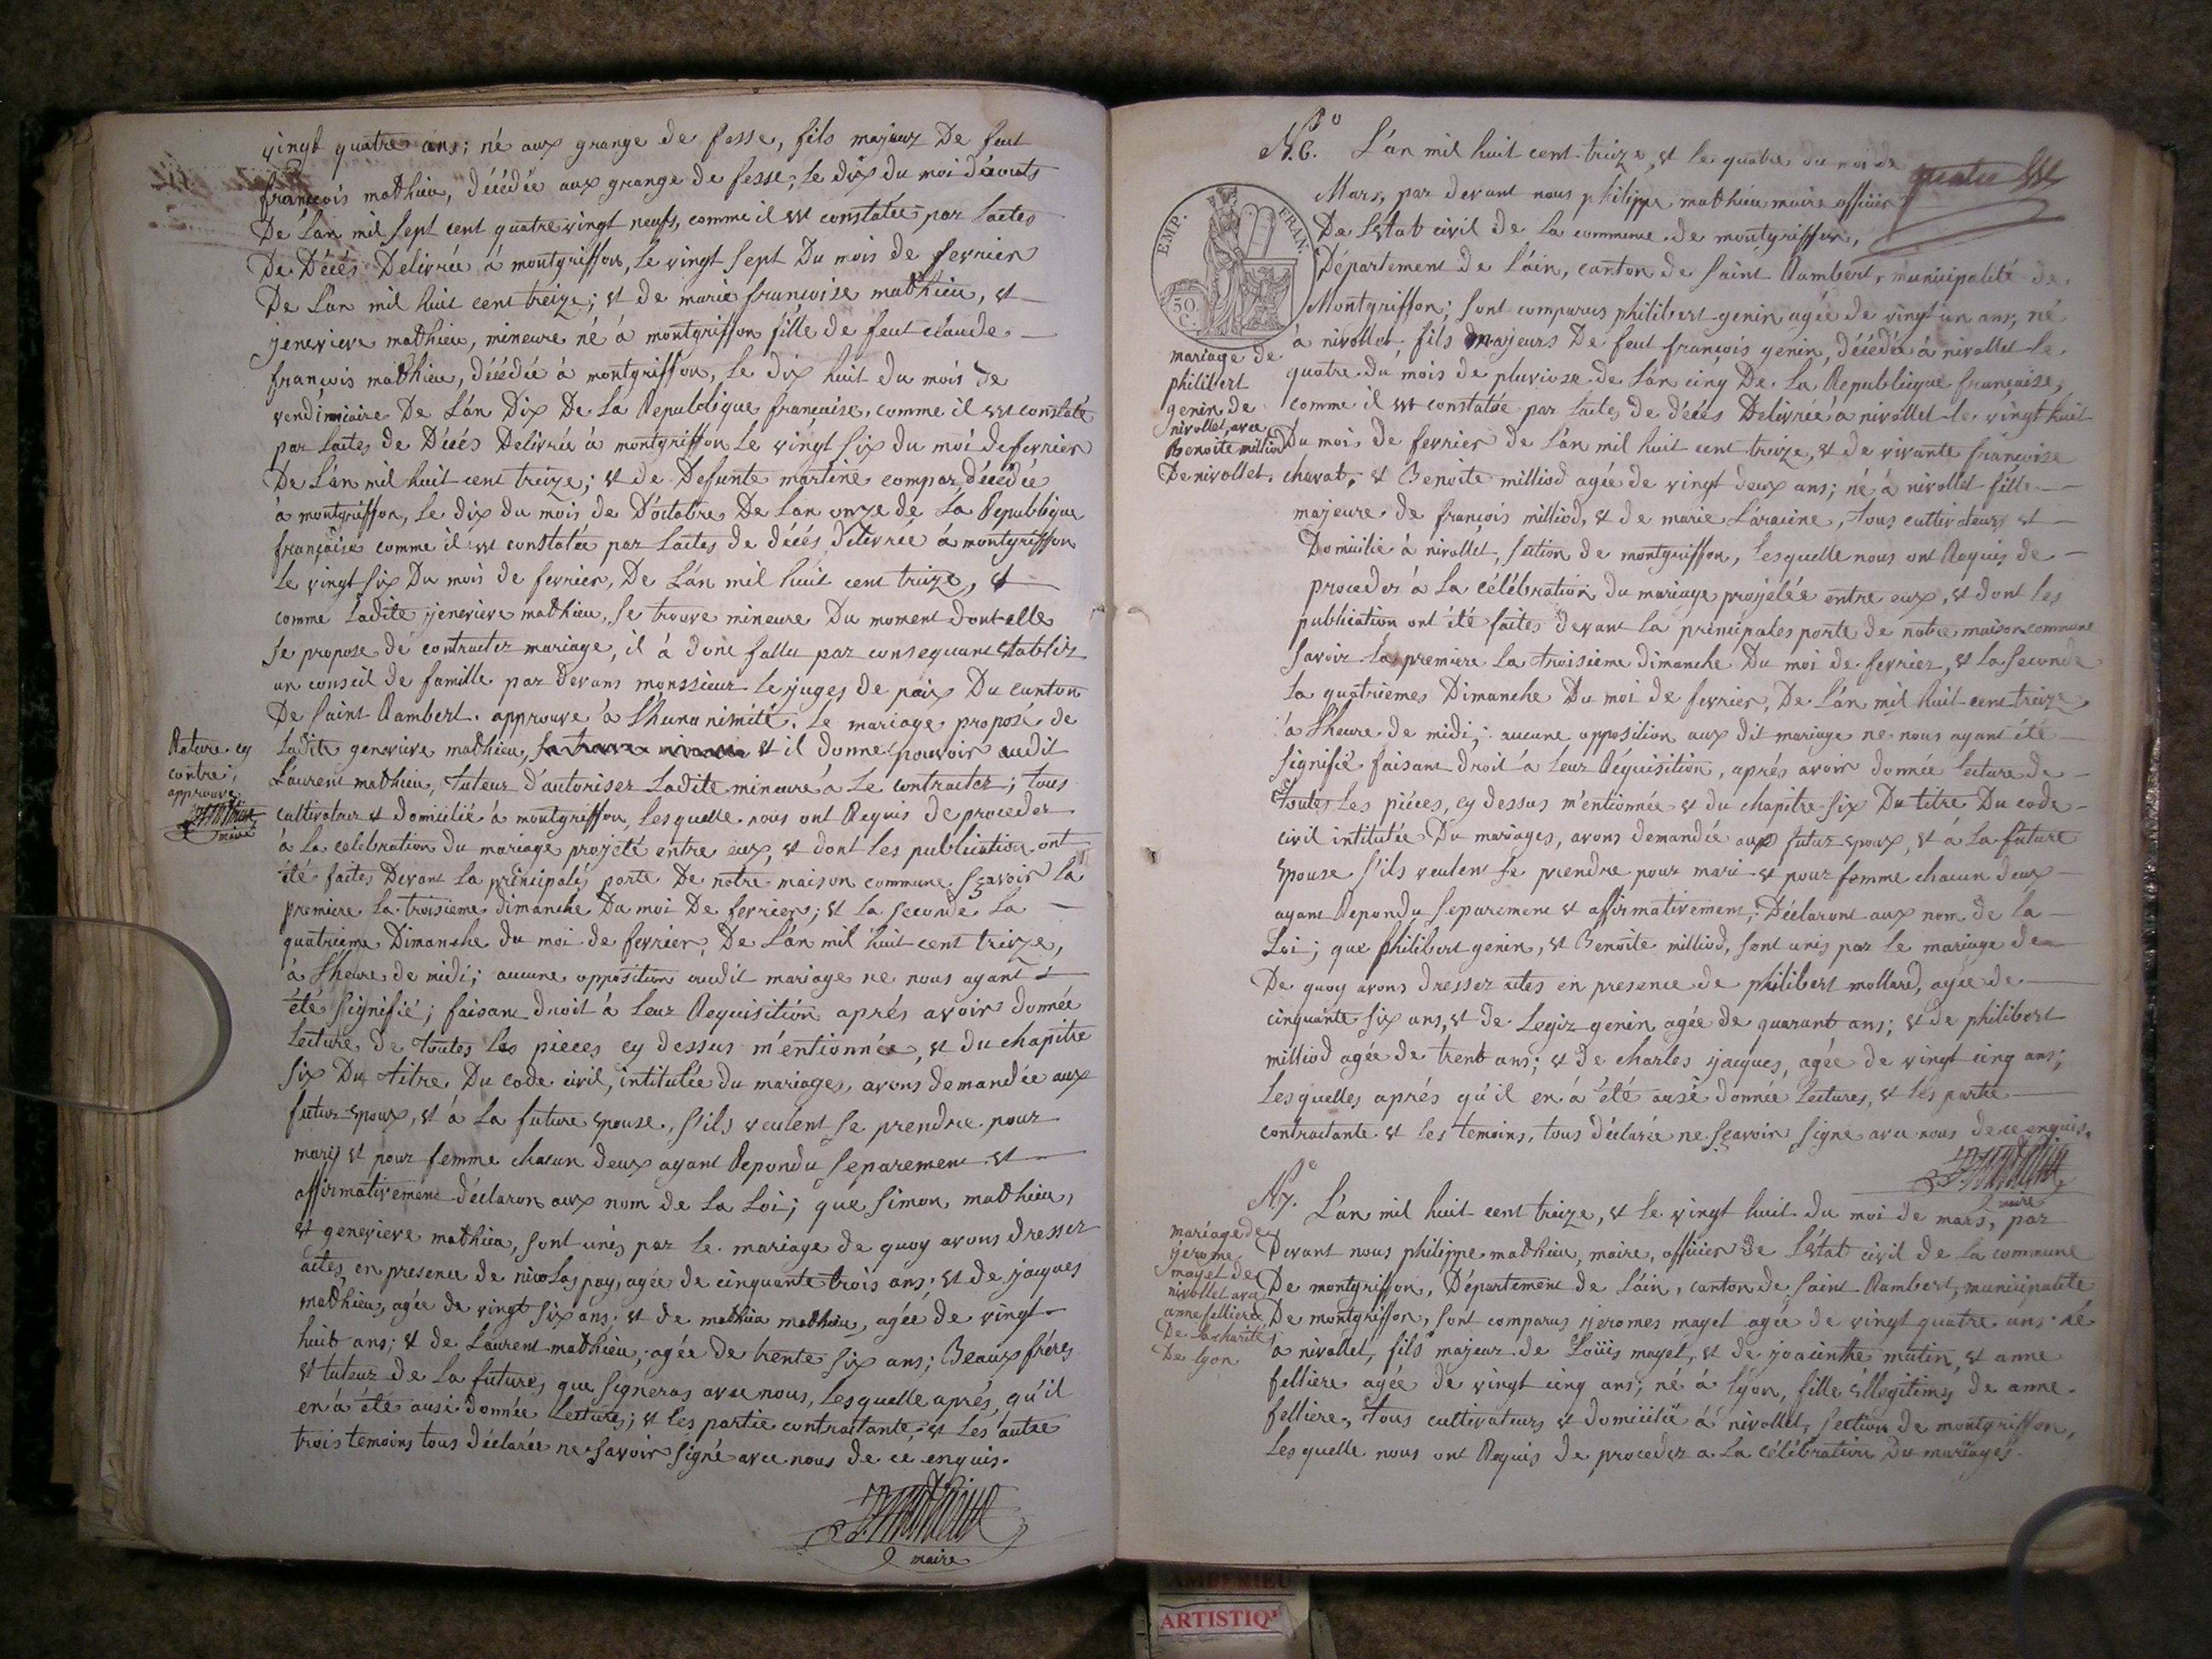 vingt quatre ans; né aux grange de fesse, fils majeur De feut
françois mathieu, décédée aux grange de fesse, le dix du moi d'aouts
De L'an mil sept cent quatre vingt neufs, comme il est constatée par l'actes
De Décés Delivrée à montgriffon, le vingt sept Du mois de fevrier
De L'an mil huit cent treize; et de marie françoise mathieu, et
jenevieve mathieu, mineure né à montgriffon fille de feut claude
françois mathieu, décédée à montgriffon, le dix huit du mois de
vendimiaire De L'an Dix De La Republique française, comme il est constaté
par l'actes de Décés Delivrée à montgriffon le vingt six du moi de fevrier
De L'an mil huit cent treize; et de Defunte martine compar, décédée
à montgriffon, Le dix du mois de D'octobre De L'an onze de La Republique
française comme il est constatée par l'actes de décés délivrée à montgriffon
le vingt six Du mois de fevrier, De L'an mil huit cent treize, et
comme Ladite jenevieve mathieu, se trouve mineure Du moment dont elle
se propose de contracter mariage, il à donc fallu par consequant Etablir
un conseil de famille par devans monssieur le juges de paix Du canton
De Saint Rambert. approuve à L'hunanimité. Le mariage proposé de
Ladite genevieve mathieu, et il donne pouvoir audit
Laurent mathieu, tuteur d'autoriser Ladite mineure à Le contracter; tous
cultivateur et Domicilié à montgriffon, Lesquelle nous ont Requis de proceder
à La celebration du mariage projété entre eux, et dont les publication ont
été faites Devant La principales porte De notre maison commune. sçavoir la
premiere La troisieme dimanche Du moi De fevrier; et La seconde La
quatrieme Dimanche du moi de fevrier, De L'an mil huit cent treize,
à L'heure de midi; aucune opposition audit mariage ne nous ayant
été signifié; faisant droit à Leur Requisition aprés avoir donnée
Lecture de toutes Les pieces cy dessus m'entionnée, et du chapitre
six Du titre Du code civil, intitulée du mariages, avons demandée aux
futur Epoux, et à La future Epouse, s'ils veulent se prendre pour
mary et pour femme chacun deux ayant Repondu separement et
affirmativement déclaron aux nom de La Loi; que Simon mathieu,
et genevieve mathieu, sont unis par le mariage de quoy avons dresser
actes en presence de nicolas pay, agée de cinquante trois ans; et de jacques
mathieu, agée de vingt six ans; et de mathieu mathieu, agée de vingt
huit ans; et de Laurent mathieu, agée de trente six ans; Beaux fréres
et tuteur de La futures que signeras avec nous, Lesquelle aprés qu'il
en à été ausi donnée Lectures; et les partie contractante, et Les autre
trois temoins tous déclarée ne savoir signé avec nous de ce enquis.
maire
Rature cy
contre
approuve
maire
N.6. L'an mil huit cent treize, et le quatre du moi de
Mars, par devant nous philippe mathieu maire officier
De L'etat civil de La commune de montgriffon,
Département de L'ain, canton de Saint Rambert, municipalité de
Montgriffon; sont comparus philibert genin agée de vingt un ans, né
à nivollet, fils majeurs De feut françois genin, décédée à nivollet le
quatre du mois de pluviose de L'an cinq De La Republique française,
comme il est constatée par l'actes de décés Delivrée à nivollet le vingt huit
Du mois de fevrier de L'an mil huit cent treize, et de vivante françoise
chavat; et Benoite milliod agée de vingt deux ans; né à nivollet fille
majeure de françois milliod, et de marie Laracine, tous cultivateurs et
Domicilié à nivollet, section de montgriffon, Lesquelle nous ont Requis de
proceder à La célébration du mariage projétée entre eux, et dont les
publication ont été faites devant la principales porte de notre maison commune
savoir La premiere La troisieme dimanche Du moi de fevrier, et La seconde
La quatriemes Dimanche Du moi de fevrier, De L'an mil huit cent treize
à L'heure de midi; aucune opposition aux dit mariage ne nous ayant été
signifié faisant droit à Leur Réquisition, aprés avoir donnée lecture de
toutes Les piéces, cy dessus m'entionnée et du chapitre six Du titre Du code
civil intitulée Du mariages, avons demandée aux futur Epoux, et à La future
Epouse s'ils veulent se prendre pour mari et pour femme chacun deux
ayant Repondu separement et affirmativement; Déclaront aux nom de la
Loi; que philibert genin, et Benoite milliod, sont unis par le mariage de
De quoy avons dresser actes en presence de philibert mollard, agée de
cinquante six ans, et de Legir genin agée de quarant ans; et de philibert
milliod agée de trent ans; et de charles jacques, agée de vingt cinq ans;
Lesquelles aprés qu'il en à été ausi donnée Lectures, et les partie
contractante et les temoins, tous déclarée ne sçavoir signe avec nous de ce enquis.
maire
EMP. FRAN.
50
C.
mariage de
philibert
genin de
nivollet, avec
Benoite milliod
De nivollet.
N.7. L'an mil huit cent treize, et le vingt huit du moi de mars, par
Devant nous philippe mathieu, maire, officier de L'état civil de La commune
De montgriffon, Département de L'ain, canton de Saint Rambert, municipalité
De montgriffon, sont comparus jeromes mayet agée de vingt quatre ans né
à nivollet, fils majeur de Loüis mayet, et de joacinthe mutin, et anne
felliere agée de vingt cinq ans; né à Lyon, fille Ellegitimes de anne
felliere, tous cultivateurs et domicilié à nivollet, section de montgriffon,
Lesquelle nous ont Requis de proceder a La célébration Du mariages.
mariage de
jerome
mayet de
nivollet avec
anne felliere
De La charite
De lyon
ARTISTIQ